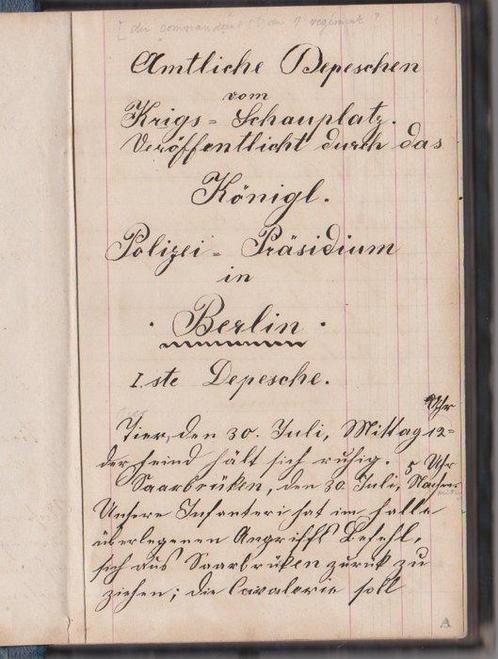 Amtliche Depeschen
vom
Krigs=Schauplatz.
Veröffentlicht durch das
Königl.
Polizei=Präsidium
in
Berlin
I.ste Depesche.
Tier, den 30. Juli, Mittag 12= Uhr
der Feind hält sich ruhig.
Saarbrüken, den 30. Juli, 5 Uhr
Unsere Infanteri hat im Falle
überlegenen Angriffs Befehl,
sich aus Saarbrüken zurük zu
ziehen; die Cavalerie soll
A